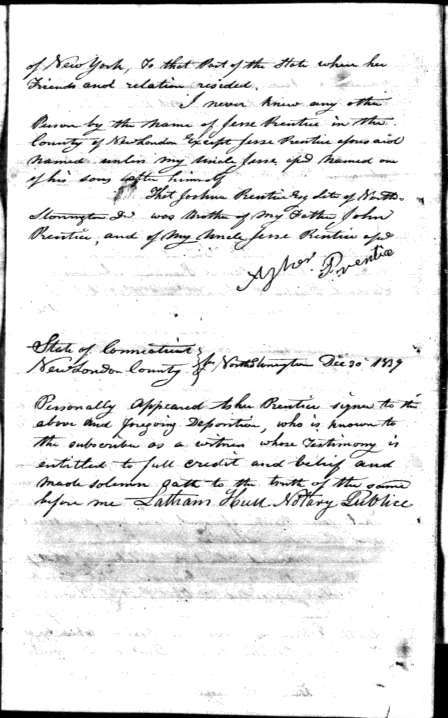 of New York, to that Part of the State where her
Friends and relation resided.
I never knew any other
Person by the name of Jesse Prentice in the
County of New London Except Jesse Prentice aforesaid
Named unless my Uncle Jesse, afsd Named one
of his sons after himself
That Joshua Prentice Esq late of North-
Stonington Dcd was Brother of my Father, John
Prentice, and of My Uncle Jesse Prentice afsd
Asher Prentice
State of Connecticut
New London County } ss NorthStonington Dec 30th 1839
Personally Appeared Asher Prentice signer to the
above and foregoing Deposition, who is known to
the subscriber as a witness whose Testimony is
entitled to full credit and belief and
made solemn oath to the truth of the same
before me Latham Hull Notary Publice